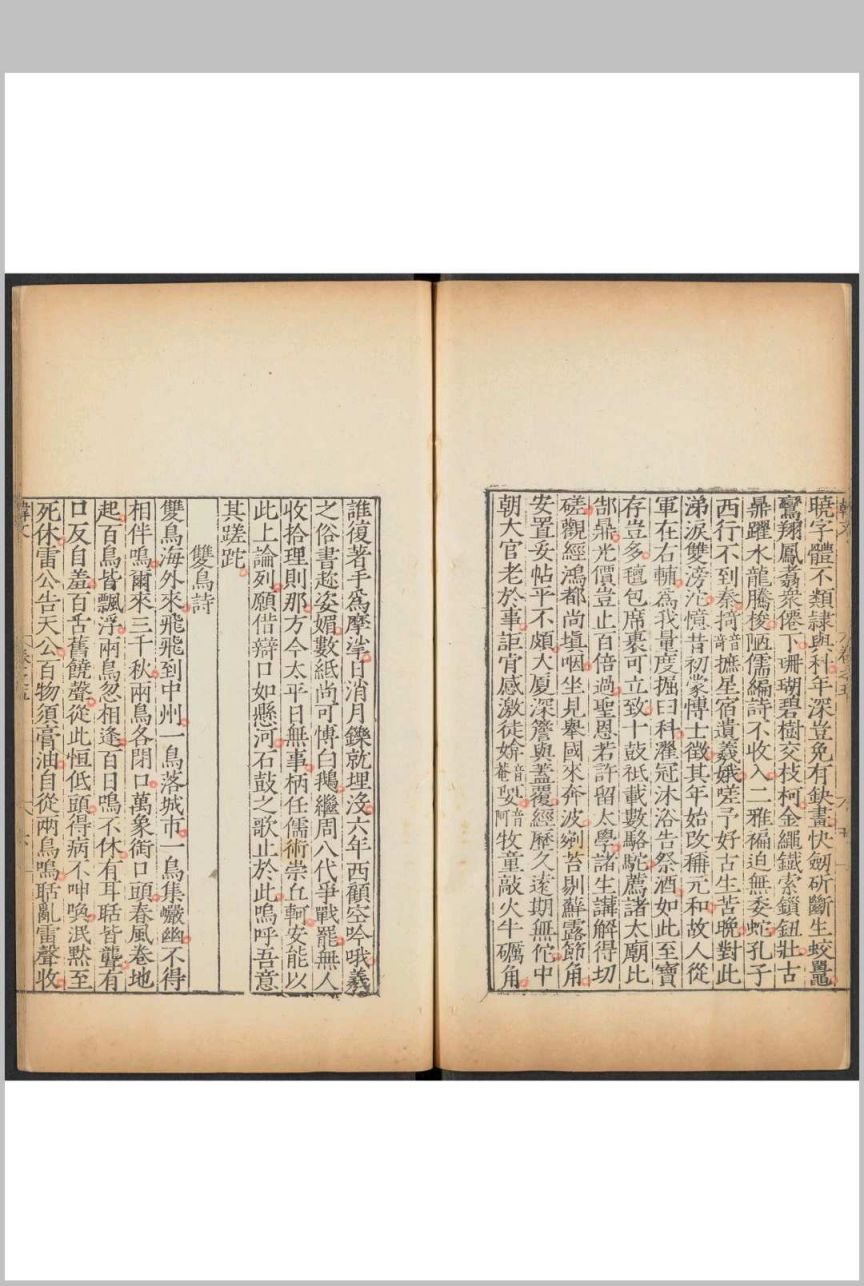 曉字體不類隷與科年深豈免有缺畫快劒斫斷生蛟鼉
鸞翔鳳翥衆僊下珊瑚碧樹交枝柯金繩鐵索鎖鈕壯古
鼎躍水龍騰梭陋儒編詩不收入二雅褊迫無委蛇孔子
西行不到秦掎音摭星宿遺羲娥嗟予好古生苦晚對此
涕淚雙滂沱憶昔初蒙博士徵其年始改稱元和故人從
軍在右輔爲我量度掘臼科濯冠沐浴告祭酒如此至寶
存豈多氊包席裹可立致十鼓祇載數駱駝薦諸太廟比
郜鼎光價豈止百倍過聖恩若許留太學諸生講解得切
磋觀經鴻都尚塡咽坐見舉國來奔波剜苔剔蘚露節角
安置妥帖平不頗大厦深簷與蓋覆經歷久遠期無佗中
朝大官老於事詎肯感激徒媕音菴娿音阿牧童敲火牛礪角
誰復著手爲摩挲日消月鑠就埋沒六年西顧空吟哦羲
之俗書趂姿媚數紙尚可博白鵝繼周八代爭戰罷無人
收拾理則那方今太平日無事柄任儒術崇丘軻安能以
此上論列願借辯口如懸河石鼓之歌止於此嗚呼吾意
其蹉跎
雙鳥詩
雙鳥海外來飛飛到中州一鳥落城市一鳥集巖幽不得
相伴鳴爾來三千秋兩鳥各閉口萬象銜口頭春風卷地
起百鳥皆飄浮兩鳥忽相逢百日鳴不休有耳聒皆聾有
口反自羞百舌舊饒聲從此恒低頭得病不呻喚泯默至
死休雷公告天公百物須膏油自從兩鳥鳴聒亂雷聲收